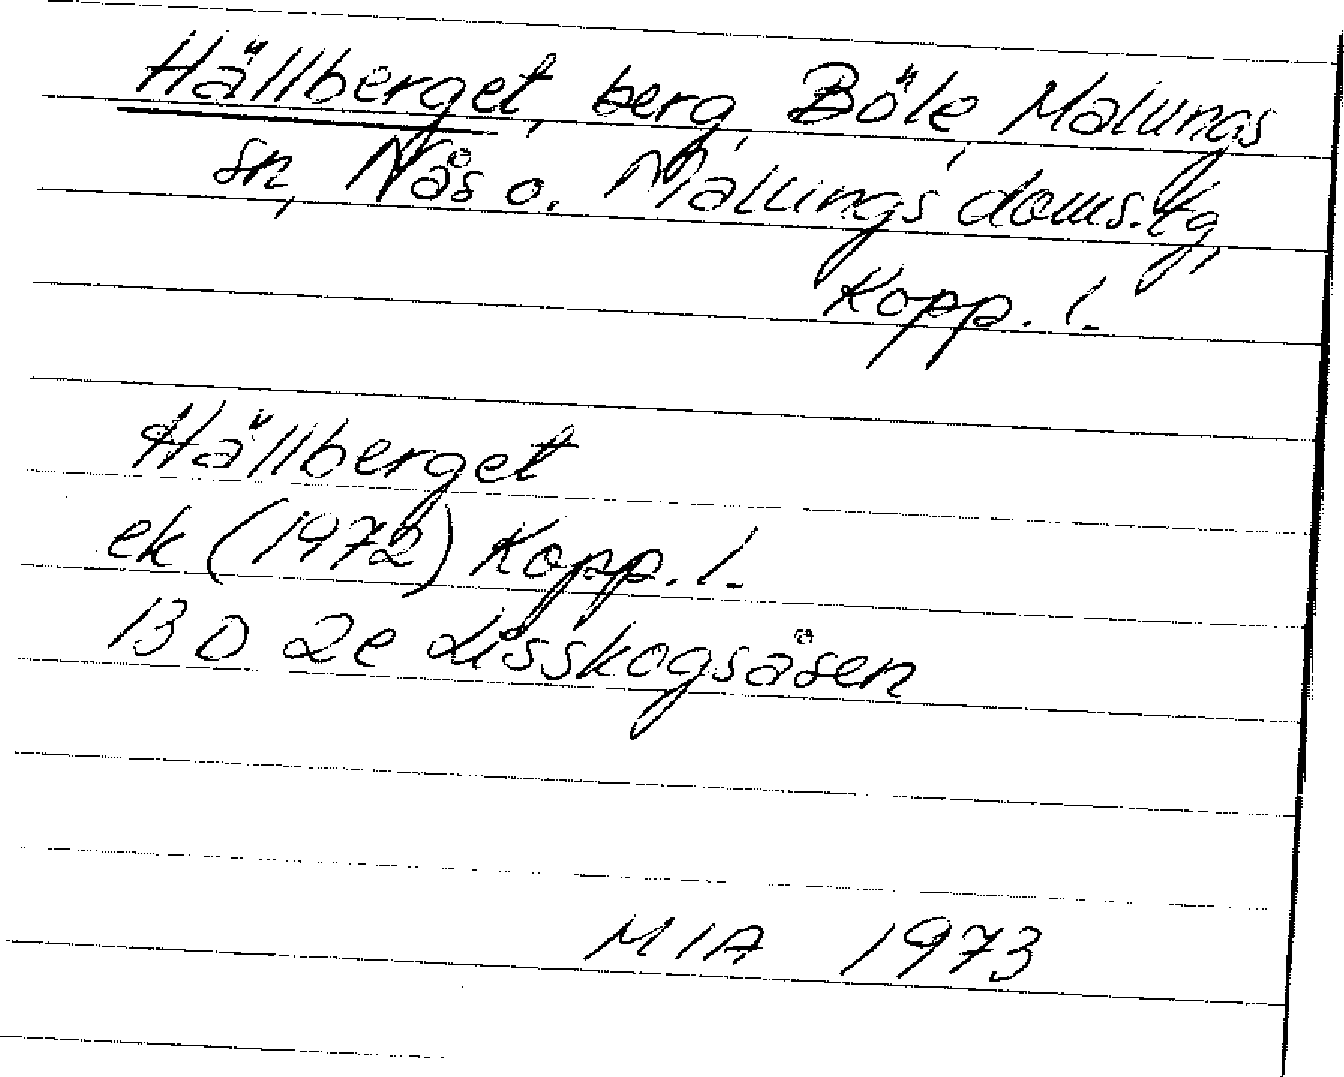 Hällberget, berg, Böle, Malungs
sn, Nås o. Malungs doms.tg,
Kopp. l.
Hällberget
ek (1972) Kopp. l.
13 D 2e Lisskogsåsen
MIA 1973